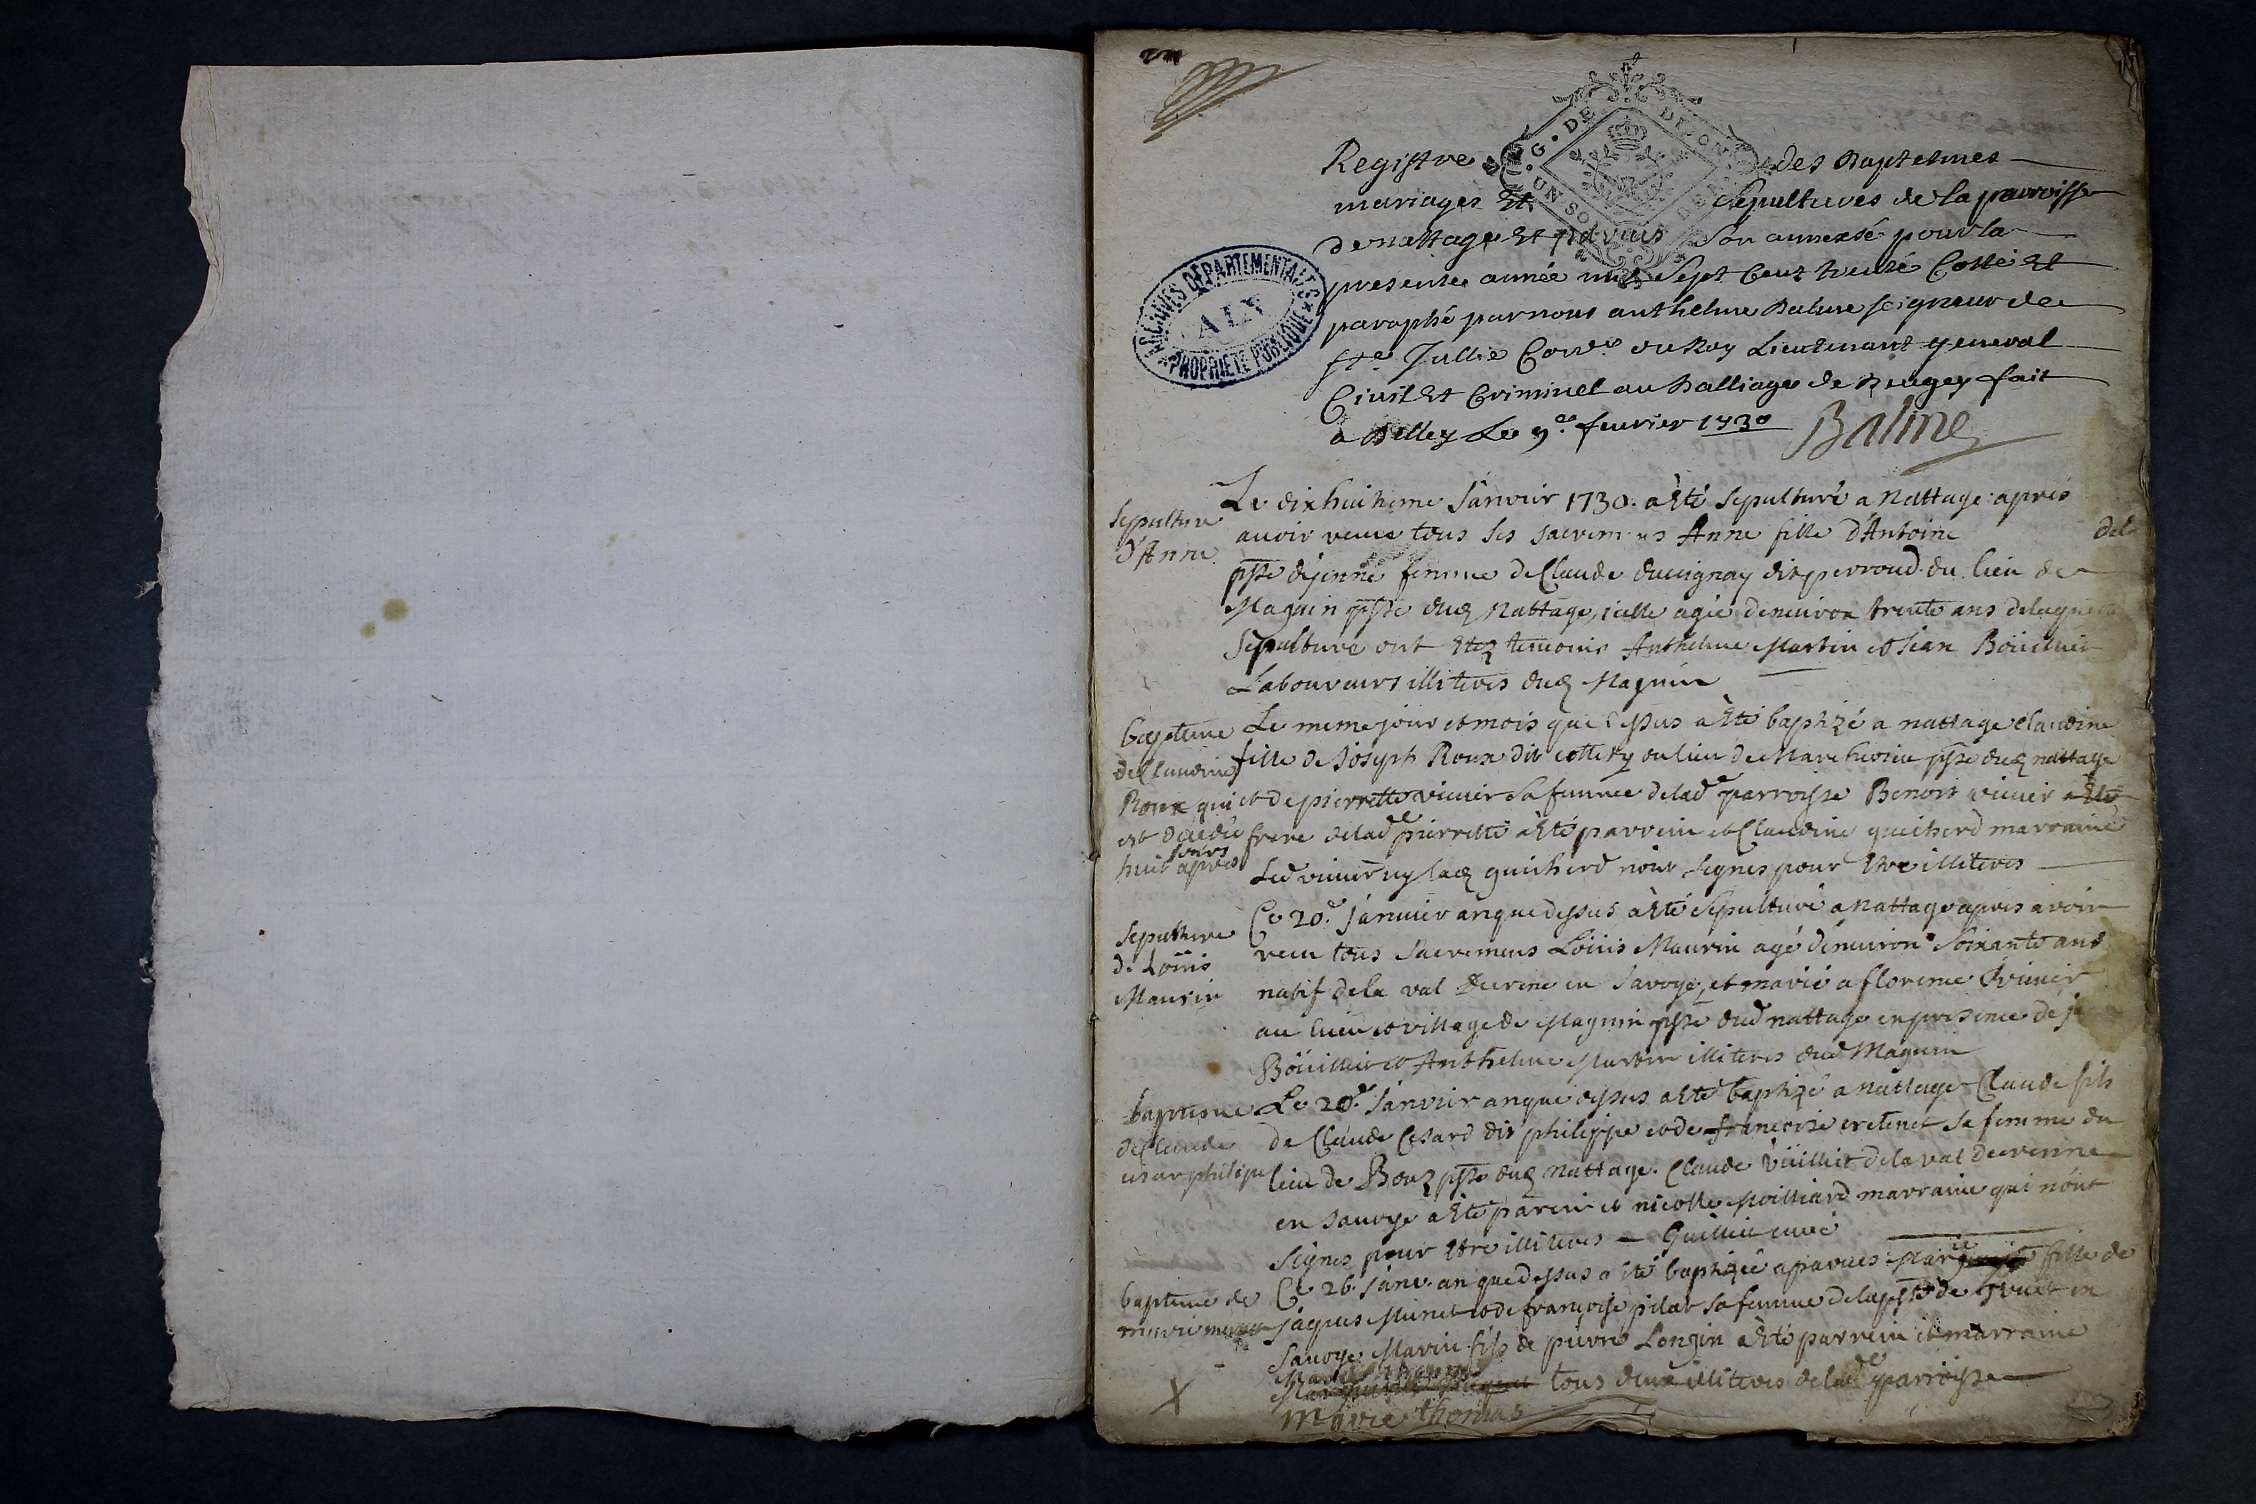 Registre des Baptesmes
mariages Et Sepultures de la parroisse
de nattage Et parves son annexse pour la
presente année mil Sept Cent trente Cotté Et
paraphé par nous anthelme Balme seigneur de
Ste. Jullie Conser. du Roy Lieutenant general
Civil Et Criminel au Balliage de Beugey fait
a Belley Le 9e. feurier 1730 Balme
G. DE DIJON
UN SOL
ARCHIVES DEPARTEMENTALES
AIN
PROPRIETE PUBLIQUE
Sepulture
d'Anne
Le dix huitieme Janvier 1730. a Eté Sepulturé a Nattage apres
auoir receu tous ses sacremens Anne fille d'Antoine del
psse de femme de Claude duvignay dit perroud du lieu de
Magnin psse dud Nattage, icelle agée d'enuiron trente ans de laquelle
Sepulture ont Etez temoins Anthelme Martin et Jean
Laboureurs illiteres dud Magnin
bapteme
de Claudine
Roux qui
est decedée
huit jours
apres
Le meme jour et mois que dessus a Eté baptizé a nattage Claudine
fille de Joseph Roux dit du lieu de psse dud nattage
et de pierrette vuiier sa femme de lade parroisse Benoit vuiier a Eté
frere de lade pierrette a Eté parrein et Claudine guicherd marraine
Led vuiier ny lad guicherd n'ont signes pour Etre illiteres
Sepulture
de Loüis
Maurin
Ce 20e. Januier an que dessus a Eté Sepulturé a Nattage apres avoir
receu tous sacremens Loüis Maurin agé d'enuiron soixante ans
natif de la val en Savoye, et marié a florence
au lieu et village de Magnin psse dud nattage en presence de
et Anthelme Martin illiteres dud Magnin
baptesme
de Claude
cesar philipe
Le 20e. Janvier an que dessus a Eté baptizé a nattage Claude fils
de Claude Cesard dit philippe et de francoise sa femme du
lieu de Bouz psse dud Nattage. Claude de la val
en Sauoye a Eté parein et nicolle marraine qui n'ont
Signes pour Etre illiteres — curé
bapteme de
marie
Ce 26. Janv. an que dessus a Eté baptizée a parves Marie fille de
Jaques et de françoise pilat sa femme de la psse de en
Sauoye Marin fils de pierre Longin a Eté parrein et marraine
tous deux illiteres de lade parroisse
marie thomas
X